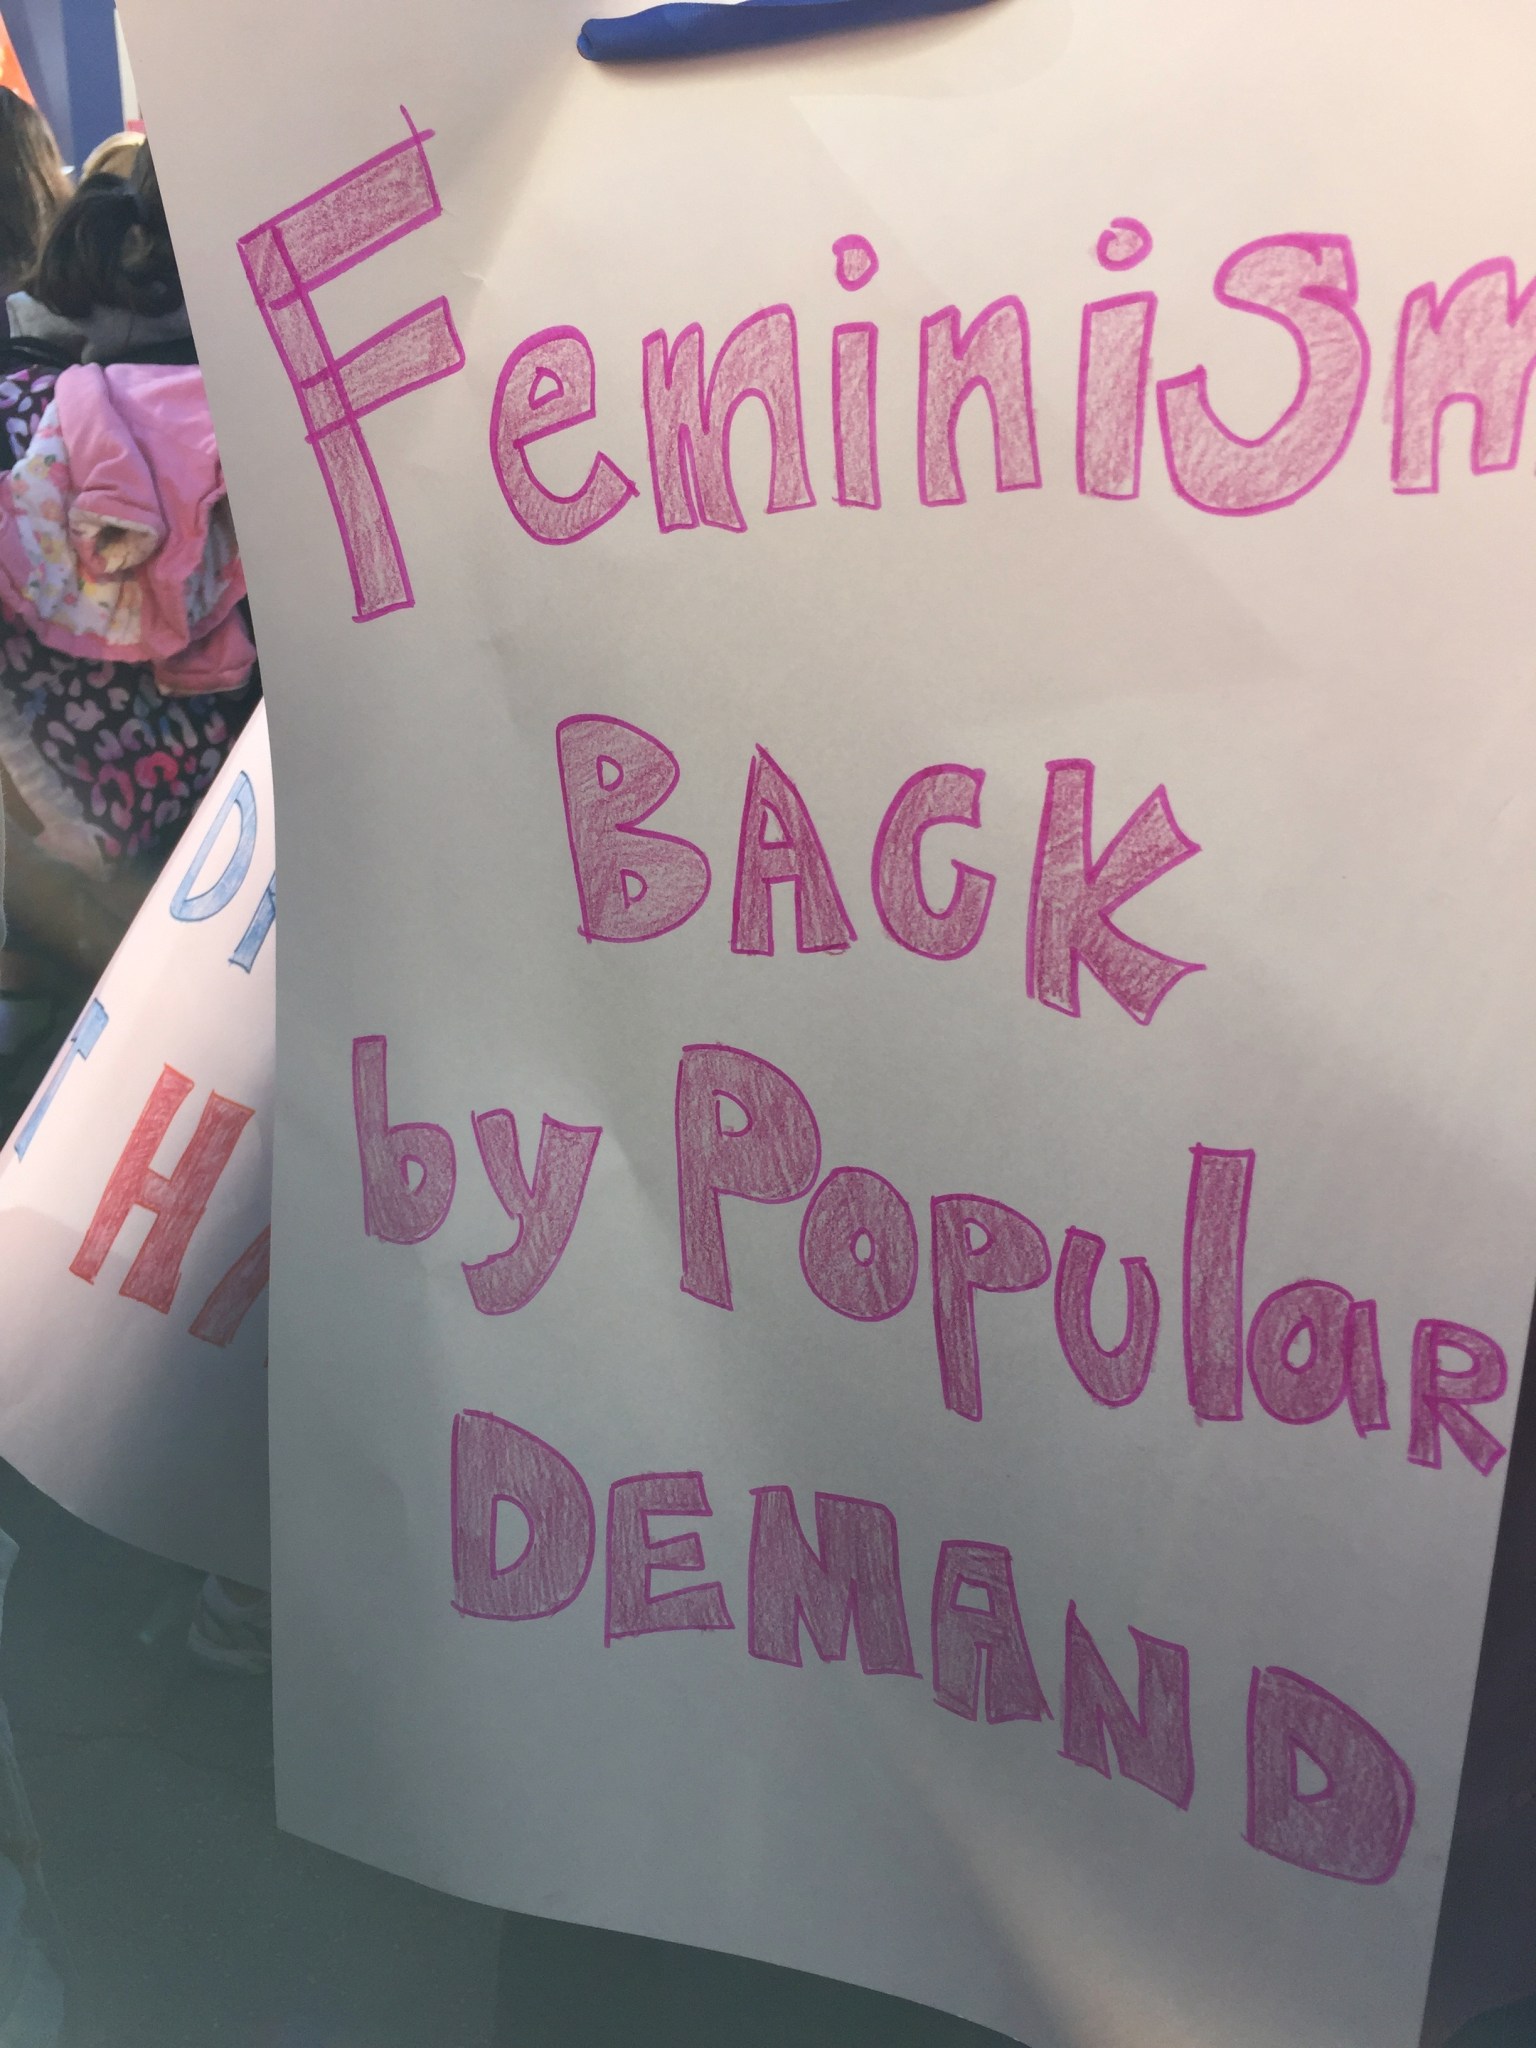 Feminism
BACK
by Popular
DEMAND